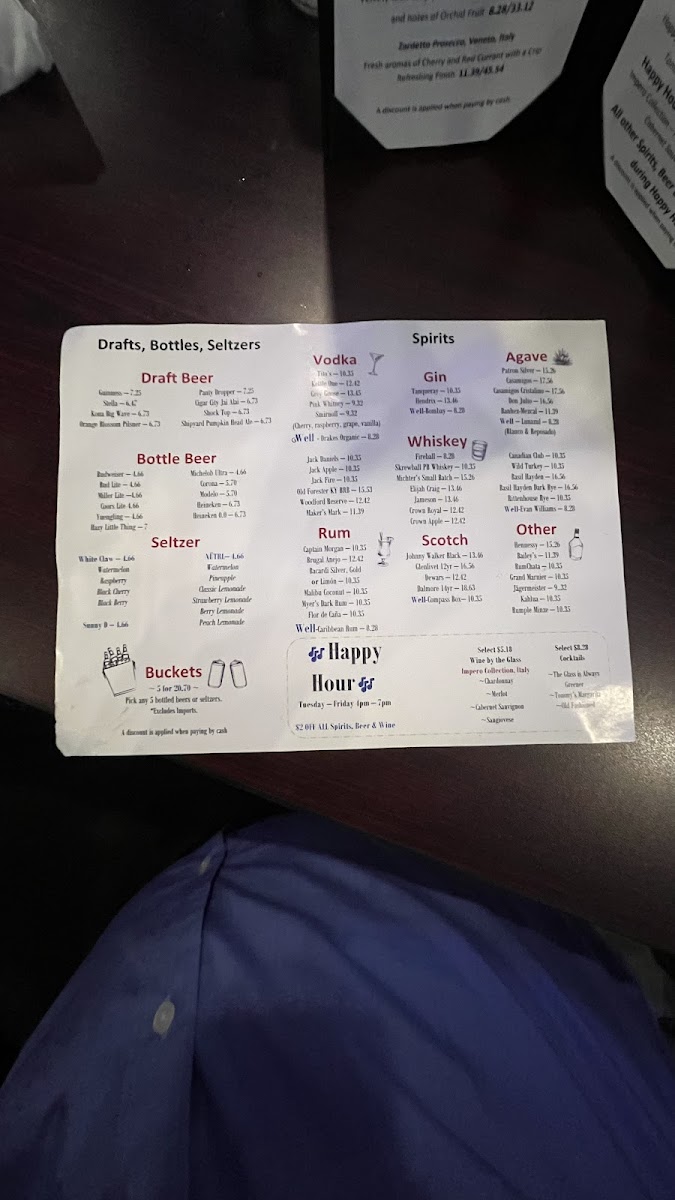 and notes of Orchid Fruit 8.28/33.12
Zardetto Prosecco, Veneto, Italy
Fresh aromas of Cherry and Red Currant with a Crisp
Refreshing Finish 11.39/45.54
A discount is applied when paying by cash
Happy Hou
All other Spirits, Beer
during Happy H
Drafts, Bottles, Seltzers
Draft Beer
Guinness – 7.25
Stella – 6.47
Kona Big Wave – 6.73
Orange Blossom Pilsner – 6.73
Panty Dropper – 7.25
Cigar City Jai Alai – 6.73
Shock Top – 6.73
Shipyard Pumpkin Head Ale – 6.73
Bottle Beer
Budweiser – 4.66
Bud Lite – 4.66
Miller Lite – 4.66
Coors Lite – 4.66
Yuengling – 4.66
Hazy Little Thing – 7
Michelob Ultra – 4.66
Corona – 5.70
Modelo – 5.70
Heineken – 6.73
Heineken 0.0 – 6.73
Seltzer
White Claw – 4.66
Watermelon
Raspberry
Black Cherry
Black Berry
Sunny D – 4.66
NÜTRL – 4.66
Watermelon
Pineapple
Classic Lemonade
Strawberry Lemonade
Berry Lemonade
Peach Lemonade
Buckets
~ 5 for 20.70 ~
Pick any 5 bottled beers or seltzers.
*Excludes Imports.
A discount is applied when paying by cash
Spirits
Vodka
Tito's – 10.35
Kettle One – 12.42
Grey Goose – 13.45
Pink Whitney – 9.32
Smirnoff – 9.32
(Cherry, raspberry, grape, vanilla)
Well - Drakes Organic – 8.28
Gin
Tanqueray – 10.35
Hendrix – 13.46
Well-Bombay – 8.28
Agave
Patron Silver – 15.26
Casamigos – 17.56
Casamigos Cristalino – 17.56
Don Julio – 16.56
Banhez Mezcal – 11.39
Well – Lunazul – 8.28
(Blanco & Reposado)
Whiskey
Jack Daniels – 10.35
Jack Apple – 10.35
Jack Fire – 10.35
Old Forester KY BRB – 15.53
Woodford Reserve – 12.42
Maker's Mark – 11.39
Fireball – 8.28
Skrewball PB Whiskey – 10.35
Michter's Small Batch – 15.26
Elijah Craig – 13.46
Jameson – 13.46
Crown Royal – 12.42
Crown Apple – 12.42
Canadian Club – 10.35
Wild Turkey – 10.35
Basil Hayden – 16.56
Basil Hayden Dark Rye – 16.56
Rittenhouse Rye – 10.35
Well-Evan Williams – 8.28
Rum
Captain Morgan – 10.35
Brugal Anejo – 12.42
Bacardi Silver, Gold
or Limón – 10.35
Malibu Coconut – 10.35
Myer's Dark Rum – 10.35
Flor de Caña – 10.35
Well-Caribbean Rum – 8.28
Scotch
Johnny Walker Black – 13.46
Glenlivet 12yr – 16.56
Dewars – 12.42
Balmore 14yr – 18.63
Well-Compass Box – 10.35
Other
Hennessy – 15.26
Bailey's – 11.39
RumChata – 10.35
Grand Marnier – 10.35
Jägermeister – 9.32
Kahlua – 10.35
Rumple Minze – 10.35
Happy
Hour
Tuesday – Friday 4pm – 7pm
$2 OFF ALL Spirits, Beer & Wine
Select $5.18
Wine by the Glass
Impero Collection, Italy
~Chardonnay
~Merlot
~Cabernet Sauvignon
~Sangiovese
Select $8.28
Cocktails
~The Glass is Always
Greener
~Tommy's Margarita
~Old Fashioned